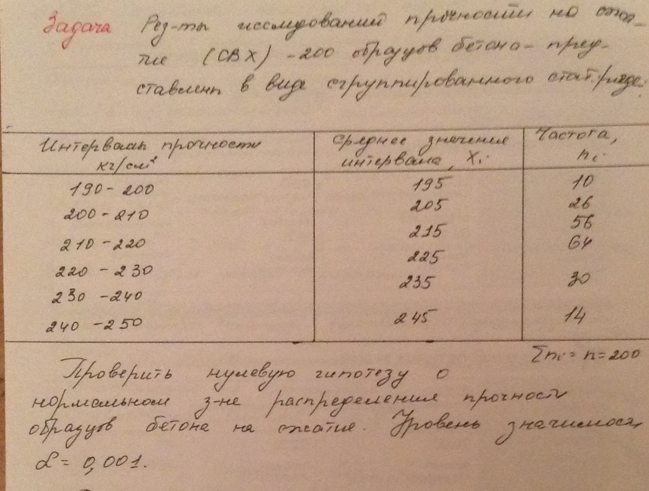 Задача Рез-ты исследований прочности на сжа-
тие (СВХ) - 200 образцов бетона - пред-
ставлены в виде сгруппированного стат. ряда:
Интервалы прочности кг/см² Среднее значение интервала, Xi Частота, ni
190 - 200 195 10
200 - 210 205 26
210 - 220 215 56
220 - 230 225 64
230 - 240 235 30
240 - 250 245 14
Σni = n = 200
Проверить нулевую гипотезу о
нормальном з-не распределения прочности
образцов бетона на сжатие. Уровень значимости
α = 0,001.